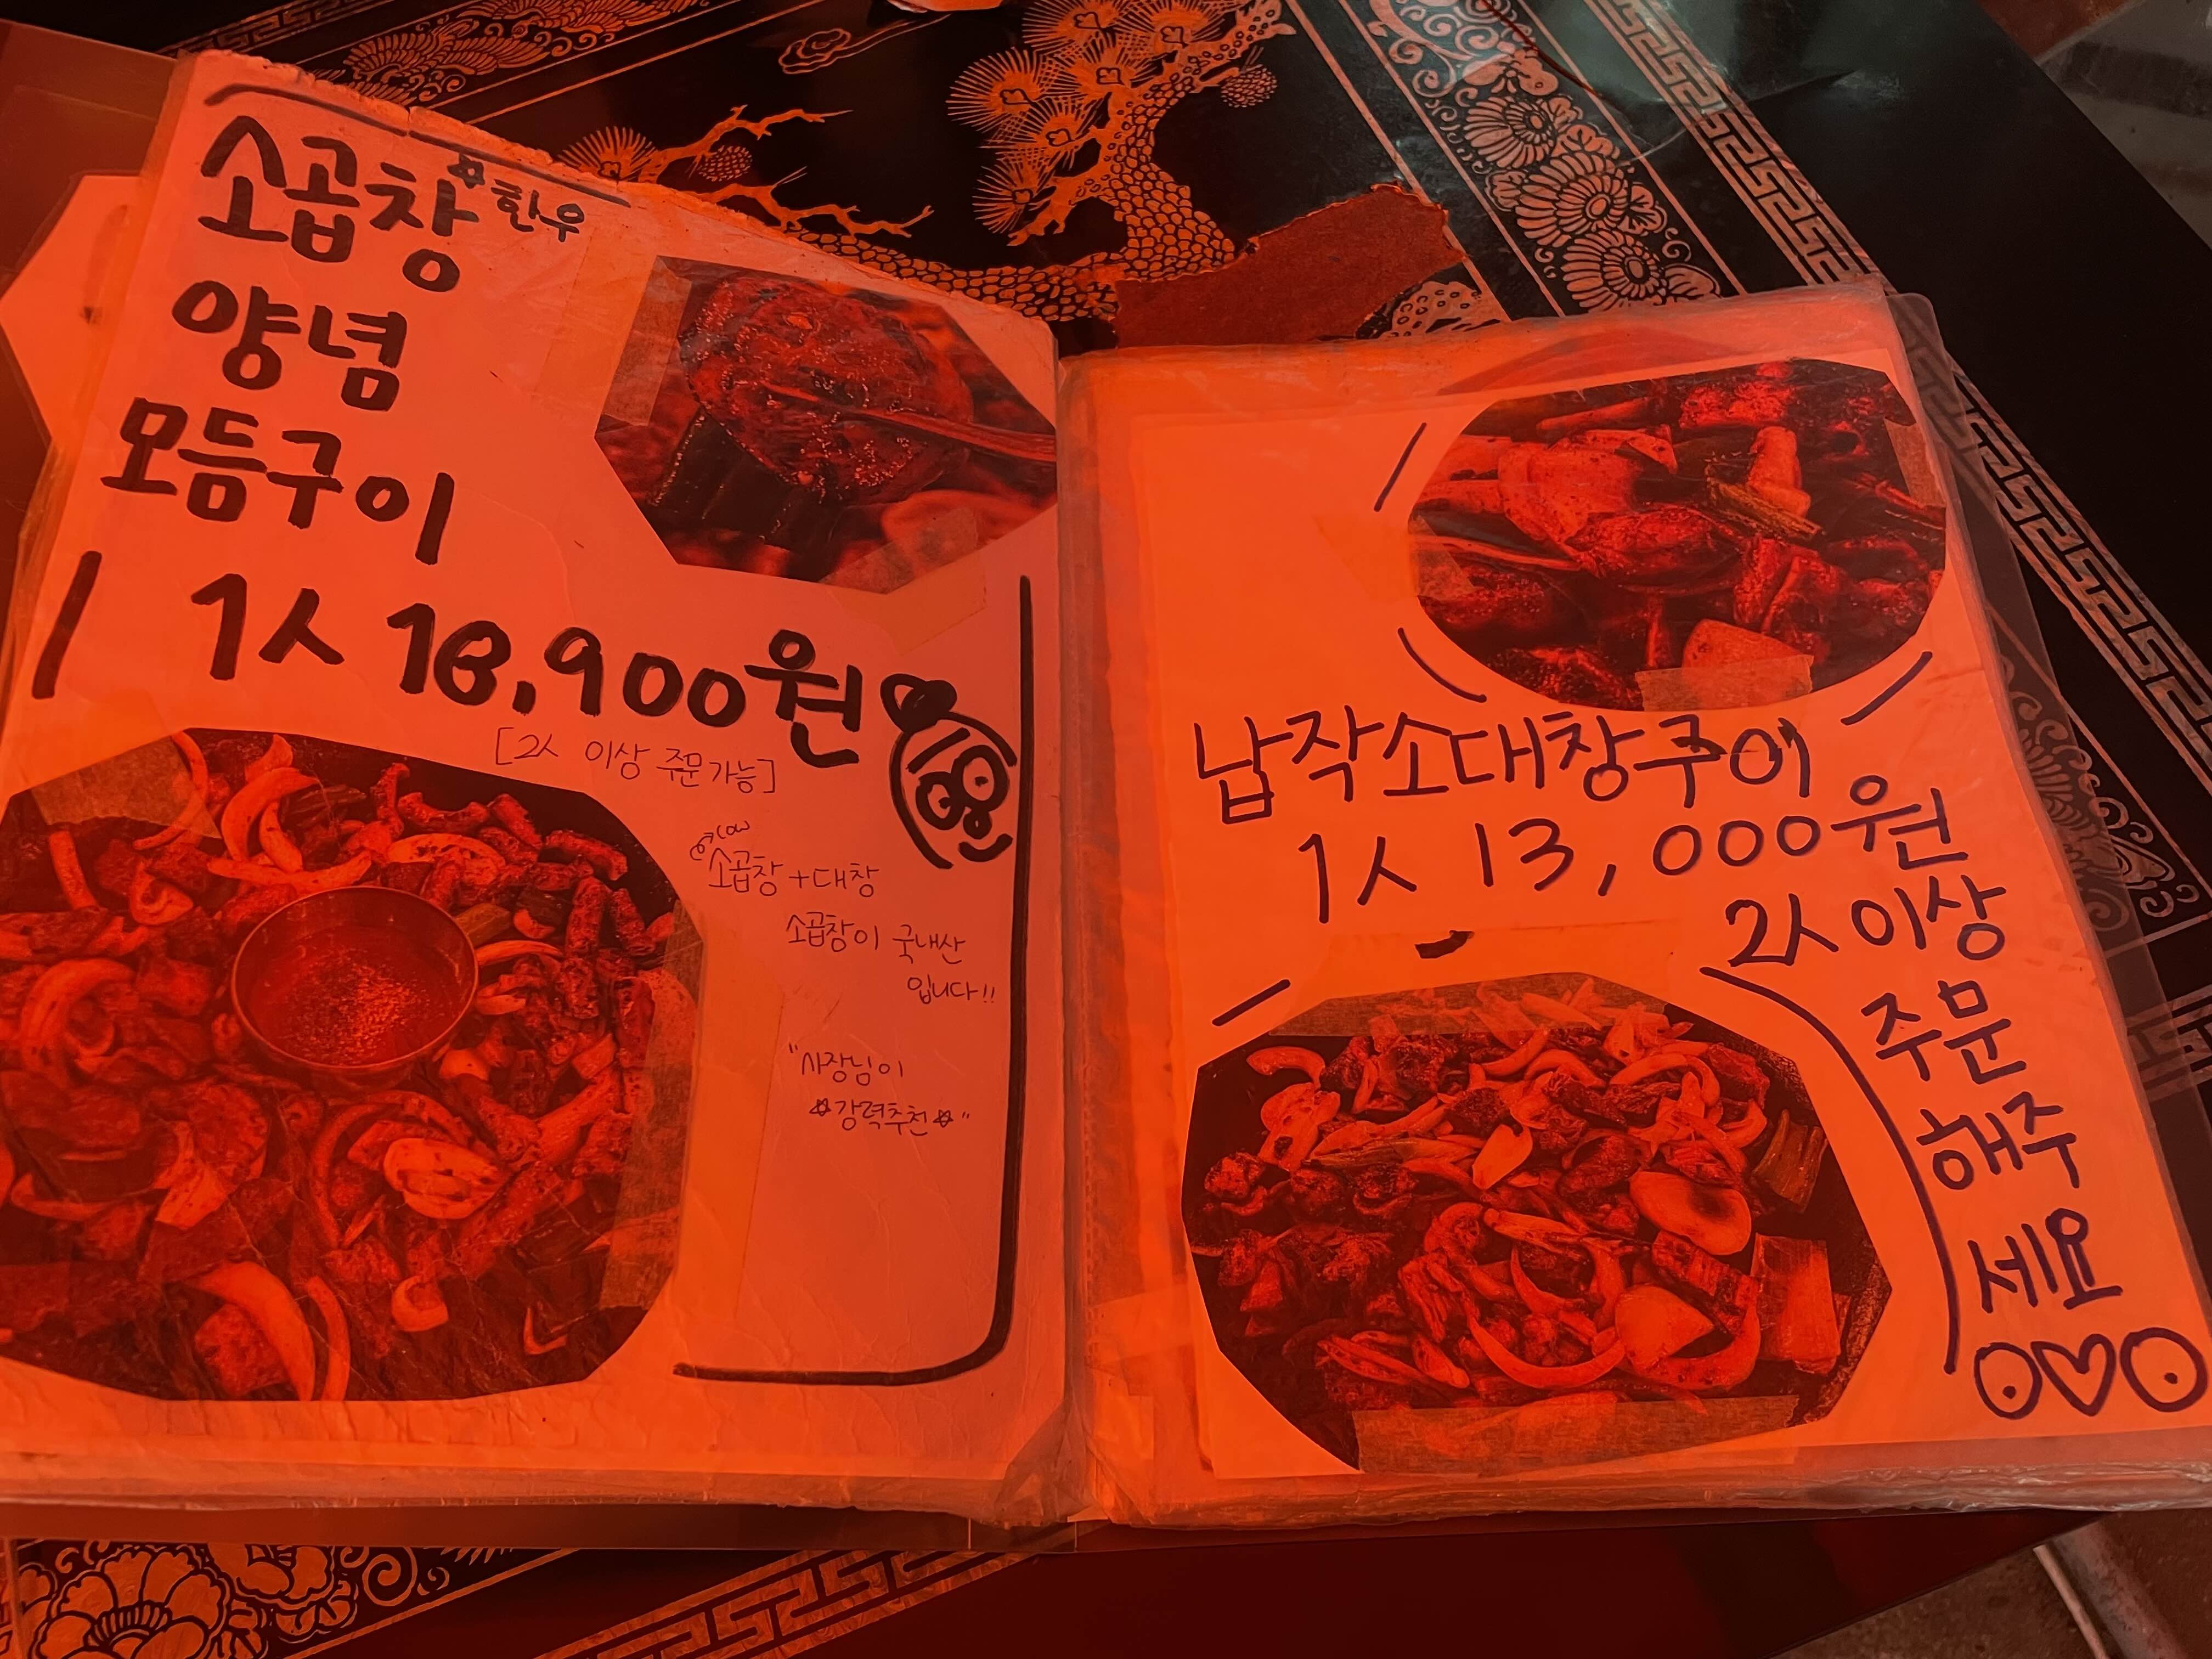 소곱창 한우
양념
모듬구이
1人 18,900원
[2人 이상 주문 가능]
cow
소곱창+대창
소곱창이 국내산
입니다!!
"사장님이
강력추천"
납작소대창구이
1人 13,000원
2人이상
주문
해주
세요